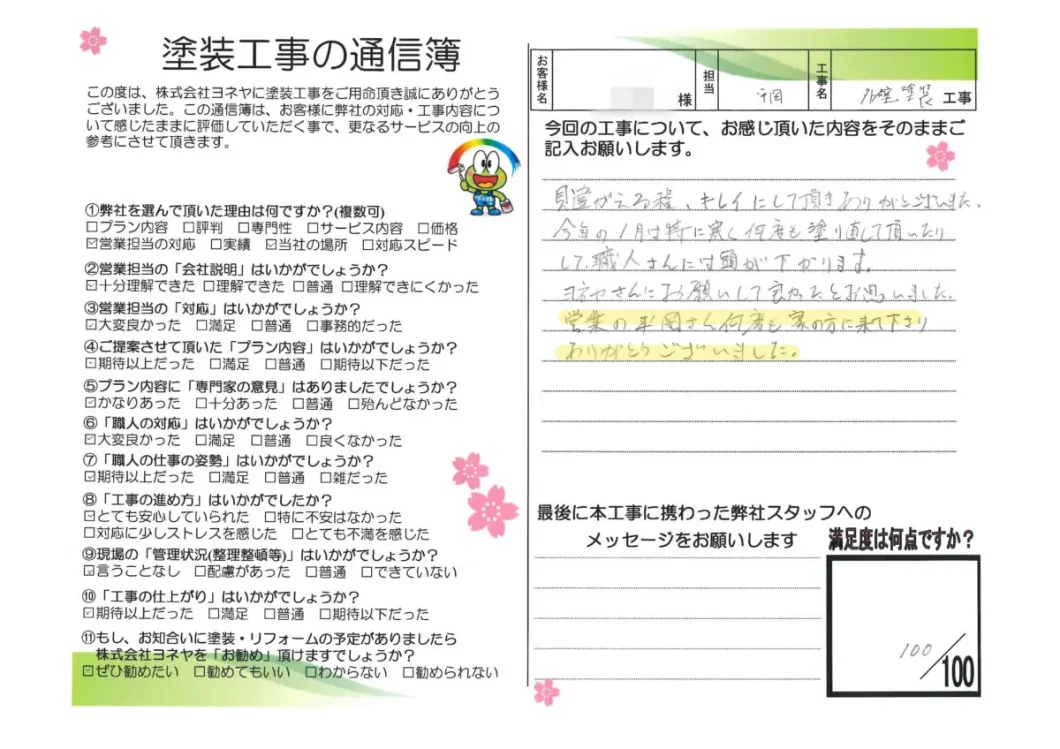 塗装工事の通信簿
この度は、株式会社ヨネヤに塗装工事をご用命頂き誠にありがとう
ございました。この通信簿は、お客様に弊社の対応・工事内容につ
いて感じたままに評価していただく事で、更なるサービスの向上の
参考にさせて頂きます。
①弊社を選んで頂いた理由は何ですか?(複数可)
□プラン内容 □評判 □専門性 □サービス内容 □価格
☑営業担当の対応 □実績 ☑当社の場所 □対応スピード
②営業担当の「会社説明」はいかがでしょうか?
☑十分理解できた □理解できた □普通 □理解できにくかった
③営業担当の「対応」はいかがでしょうか?
☑大変良かった □満足 □普通 □事務的だった
④ご提案させて頂いた「プラン内容」はいかがでしょうか?
☑期待以上だった □満足 □普通 □期待以下だった
⑤プラン内容に「専門家の意見」はありましたでしょうか?
☑かなりあった □十分あった □普通 □殆んどなかった
⑥「職人の対応」はいかがでしょうか?
☑大変良かった □満足 □普通 □良くなかった
⑦「職人の仕事の姿勢」はいかがでしょうか?
☑期待以上だった □満足 □普通 □雑だった
⑧「工事の進め方」はいかがでしたか?
☑とても安心していられた □特に不安はなかった
□対応に少しストレスを感じた □とても不満を感じた
⑨現場の「管理状況(整理整頓等)」はいかがでしょうか?
☑言うことなし □配慮があった □普通 □できていない
⑩「工事の仕上がり」はいかがでしょうか?
☑期待以上だった □満足 □普通 □期待以下だった
⑪もし、お知合いに塗装・リフォームの予定がありましたら
株式会社ヨネヤを「お勧め」頂けますでしょうか?
☑ぜひ勧めたい □勧めてもいい □わからない □勧められない
お客様名 様 担当 平岡 工事名 外壁塗装 工事
今回の工事について、お感じ頂いた内容をそのままご
記入お願いします。
見違がえる程、キレイにして頂きありがとうございました。
今年の1月は特に寒く何度も塗り直して頂いたり
して、職人さんには頭が下がります。
ヨネヤさんにお願いして良かったとお思いました。
営業の平岡さん何度も家の方に来て下さり
ありがとうございました。
最後に本工事に携わった弊社スタッフへの
メッセージをお願いします
満足度は何点ですか?
100/100